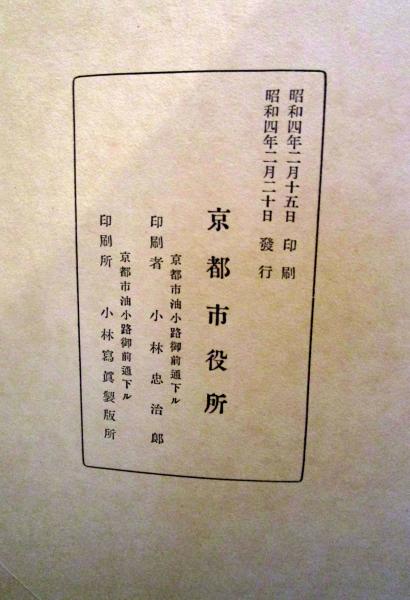 昭和四年二月十五日 印刷
昭和四年二月二十日 發行
京都市役所
京都市油小路御前通下ル
印刷者 小林忠治郞
京都市油小路御前通下ル
印刷所 小林寫眞製版所